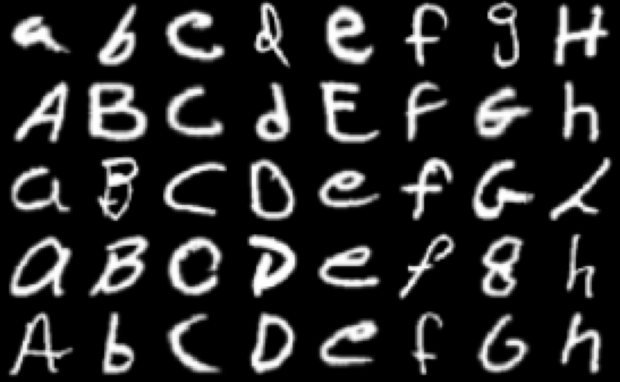 a b c d e f g H
A B C d E F G h
a B C D e f G h
a B C D e f g h
A b C D e f G h